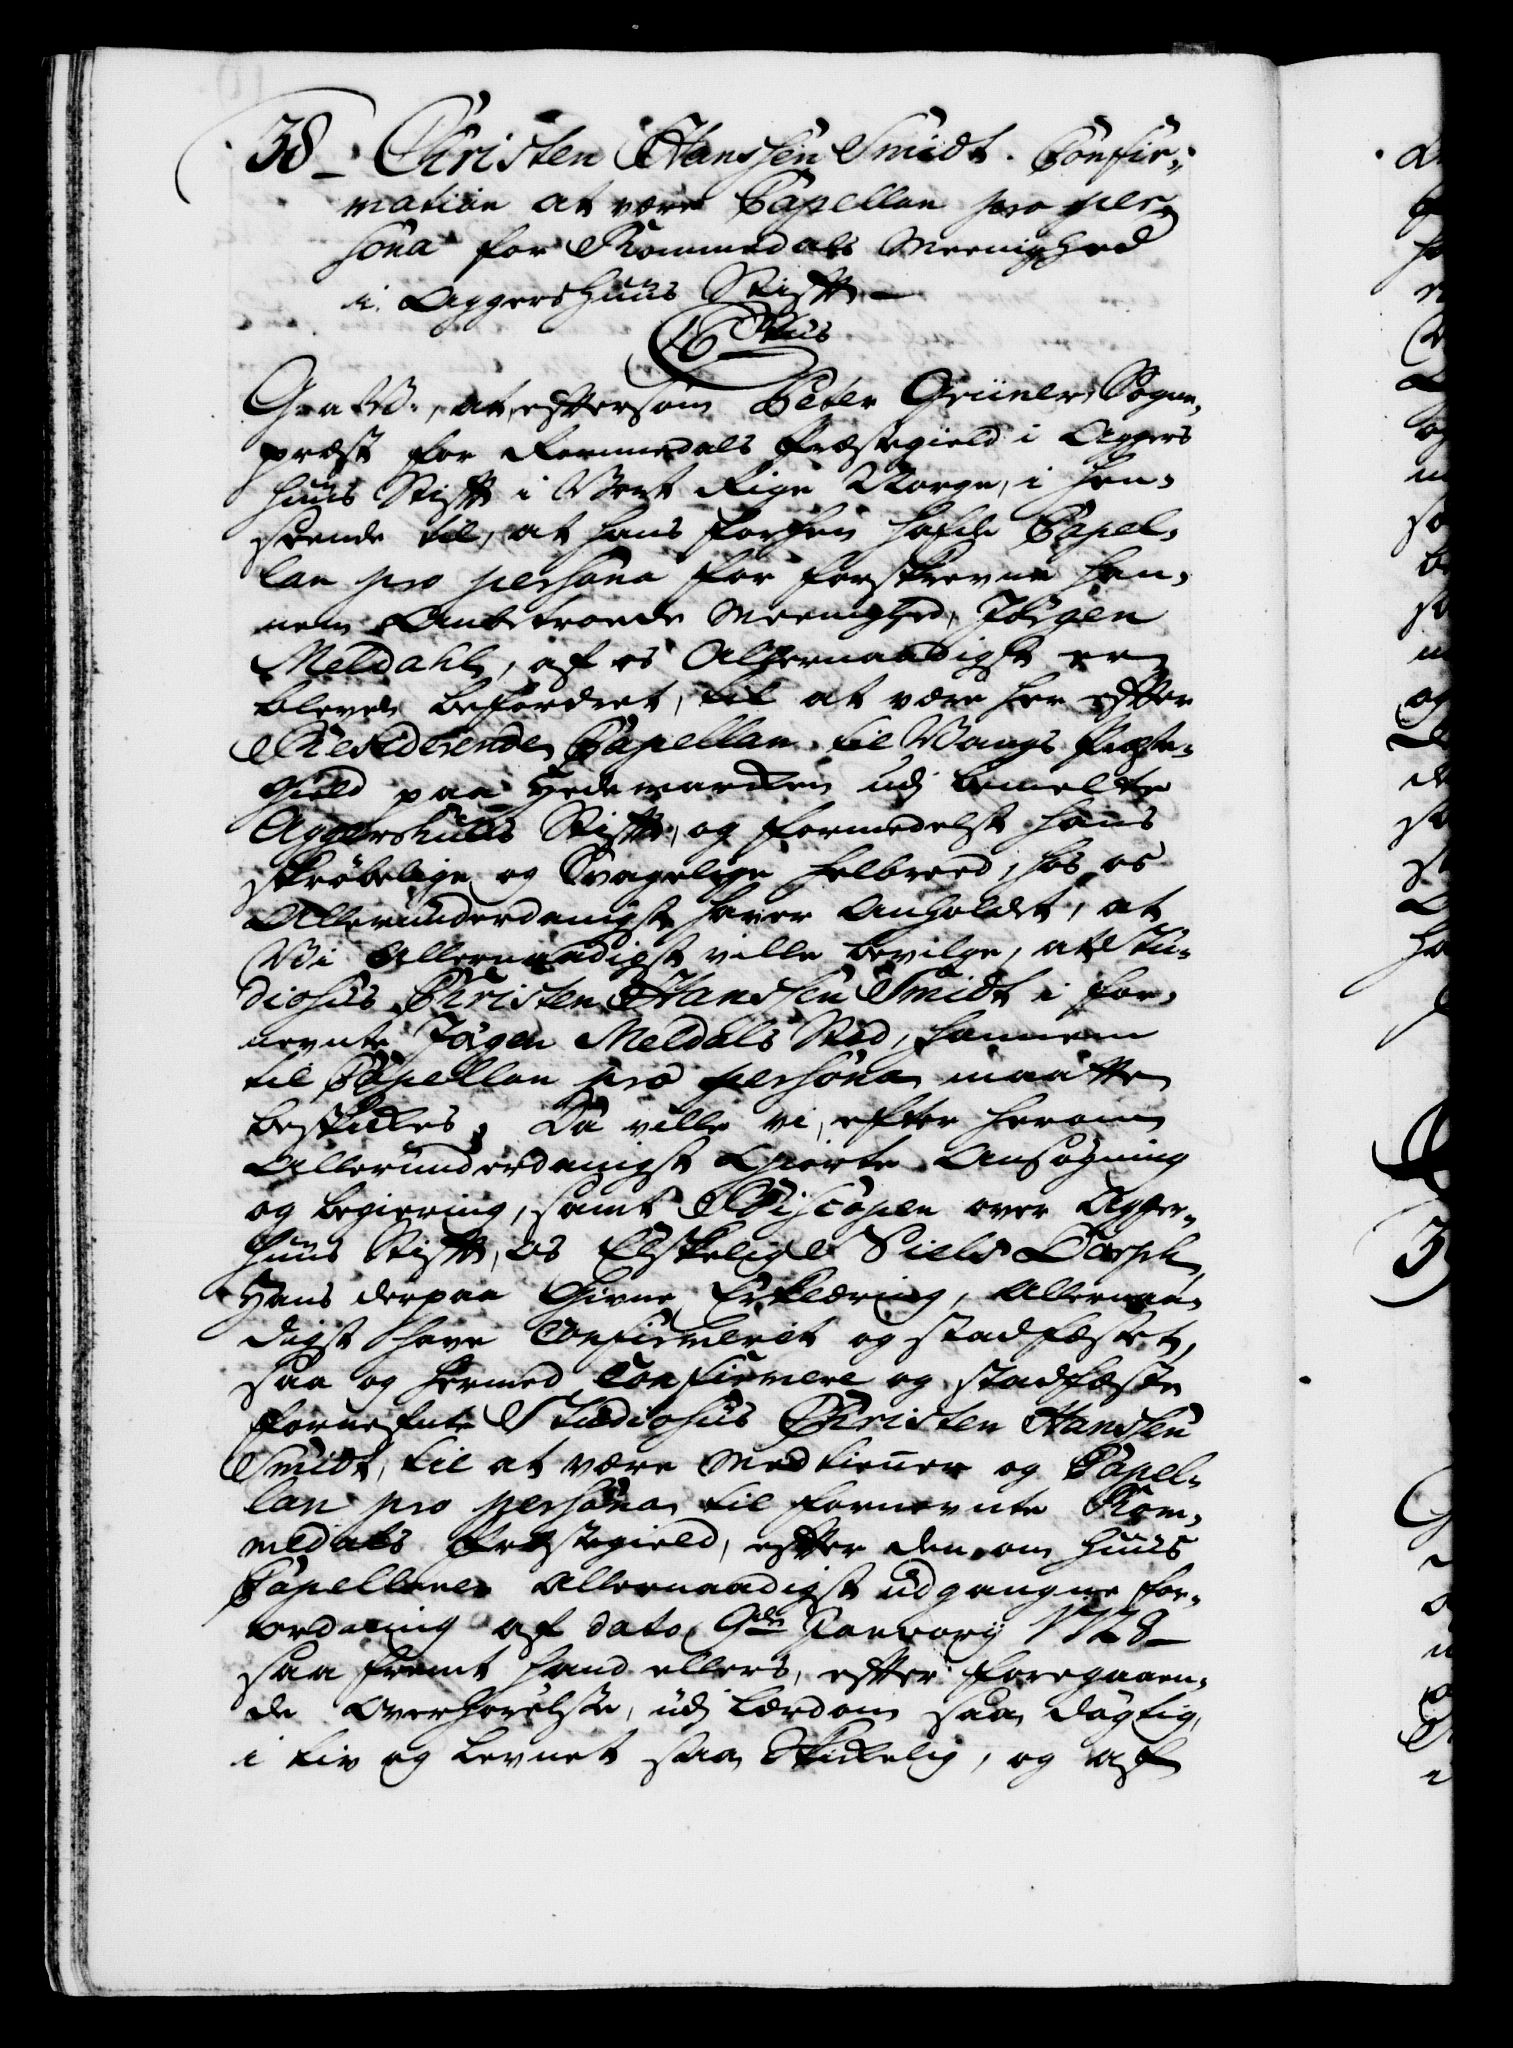 38 Christen Hanssen Smidt. Confir-
mation at være Capellan pro per-
sona for Rommedals Meenighed
i Aggershuus Stift
C 6tus
G. a. V., at eftersom Peter Grüner, Sogne-
præst for Rommedals Præstegield i Aggers
huus Stift i Vort Rige Norge, i hen-
seende til, at hans forhen hafde Capel-
lan pro persona for forskrevne han-
nem Anbetroede Meenighed, Jörgen
Meldahl, af os Allernaadigst er
bleven befordret, til at være her efter
Residerende Capellan til Vangs Præste-
gield paa Hedemarken udj bemelte
Aggershuus Stift, og formedelst hans
skröbelige og Svagelige helbreed, hos os
Allerunderdanigst haver Anholdet, at
Vi Allernaadigst ville bevilge, at Stu-
diosus Christen Hanssen Smidt i for-
nevnte Jörgen Meldals Sted, hannem
til Capellan pro persona maatte
beskikkes; Da ville vi, efter herom
Allerunderdanigst giorte Ansögning
og begiering, samt Biscopen over Agger-
huus Stift, os Elskelige Niels Dorph,
Hans derpaa Givne Erklæring, Allernaa-
digst have Confirmerit og stadfæstet,
saa og hermed Confirmere og stadfæste
fornefnte Studiosus Christen Hanssen
Smidt, til at være Medtiener og Capel-
lan pro persona til fornevnte Rom-
medals Præstegield, efter den om Huus
Capellaner Allernaadigst udgangne for-
ordning af dato 9de Janvarij 1728
saa fremt hand ellers, efter foregaaen-
de Overhörelse, udj Lærdom saa dögtig,
i Liv og Levnet saa Skikkelig, og af